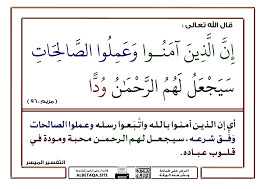 قال الله تعالى :
إِنَّ الَّذِينَ آمَنُوا وَعَمِلُوا الصَّالِحَاتِ
سَيَجْعَلُ لَهُمُ الرَّحْمَٰنُ وُدًّا
(مريم: ٩٦)
أي إن الذين آمنوا بالله واتَّبَعوا رسله وعملوا الصالحات
وَفْق شرعه، سيجعل لهم الرحمن محبة ومودة في
قلوب عباده.
التفسير الميسر
ALBETAQA.SITE